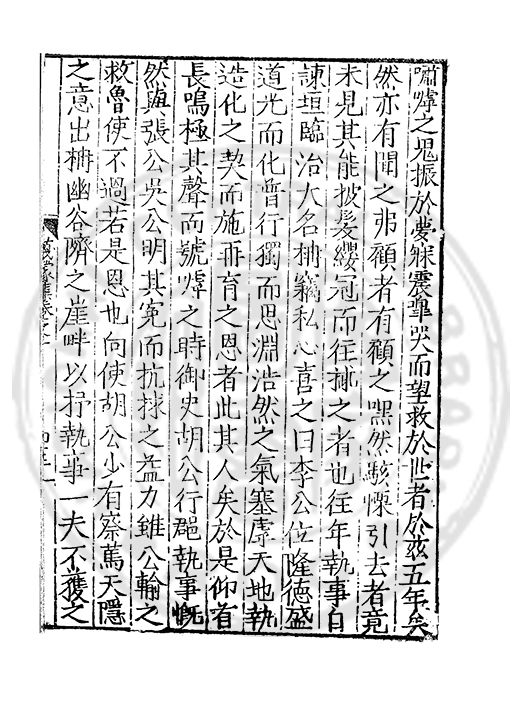 嘯嘷之鬼振於夢寐震聾哭而望救於世者於茲五年矣
然亦有聞之弗顧者有顧之嘿然駭慄引去者竟
未見其能披髮纓冠而往捄之者也往年執事自
諫垣臨治大名楠竊私心喜之曰李公位隆德盛
道光而化普行獨而思淵浩然之氣塞虖天地執
造化之契而施冊育之恩者此其人矣於是仰首
長鳴極其聲而號嘷之時御史胡公行郡執事慨
然與張公吳公明其寃而抗捄之益力雖公輸之
救魯使不過若是恩也向使胡公少有察蔿天隱
之意出楠幽谷隮之崖畔以抒執事一夫不獲之